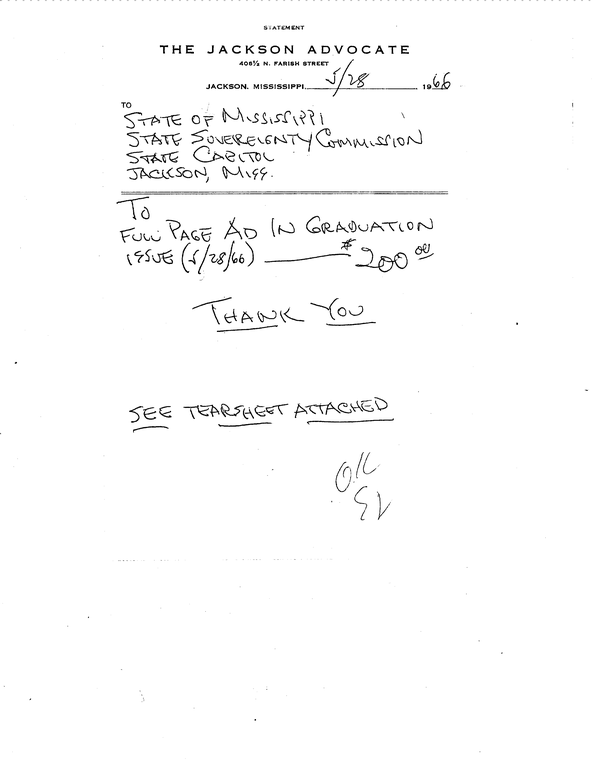 STATEMENT
THE JACKSON ADVOCATE
406½ N. FARISH STREET
JACKSON, MISSISSIPPI 5/28 1966
TO
STATE OF MISSISSIPPI
STATE SOVEREIGNTY COMMISSION
STATE CAPITOL
JACKSON, MISS.
TO
FULL PAGE AD IN GRADUATION
ISSUE (5/28/66) $200 00
THANK YOU
SEE TEARSHEET ATTACHED
O.K.